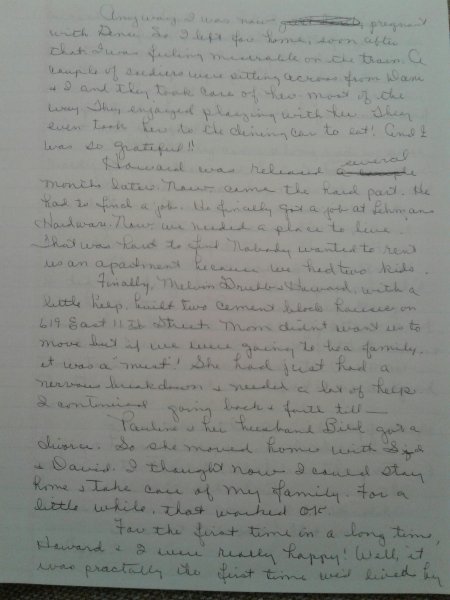 Anyway, I was now pregnant
with Dena. So I left for home, soon after
that. I was feeling miserable on the train. A
couple of soldiers were sitting across from
& I and they took care of her most of the
way. They enjoyed playing with her. They
even took her to the dining car to eat! And I
was so grateful!!
Howard was released several
months later. Now came the hard part. He
had to find a job. He finally got a job at Lehmans
Hardware. Now we needed a place to live.
That was hard to find. Nobody wanted to rent
us an apartment because we had two kids.
Finally, Melvin & Howard, with a
little help, built two cement block houses on
619 East 11th Street. Mom didn't want us to
move but if we were going to be a family,
it was a "must"! She had just had a
nervous breakdown & needed a lot of help.
I continued going back & forth till—
Pauline & her husband Bill got a
divorce. So she moved home with
& David. I thought now I could stay
home & take care of my family. For a
little while, that worked OK.
For the first time in a long time,
Howard & I were really happy! Well, it
was practally the first time we'd lived by